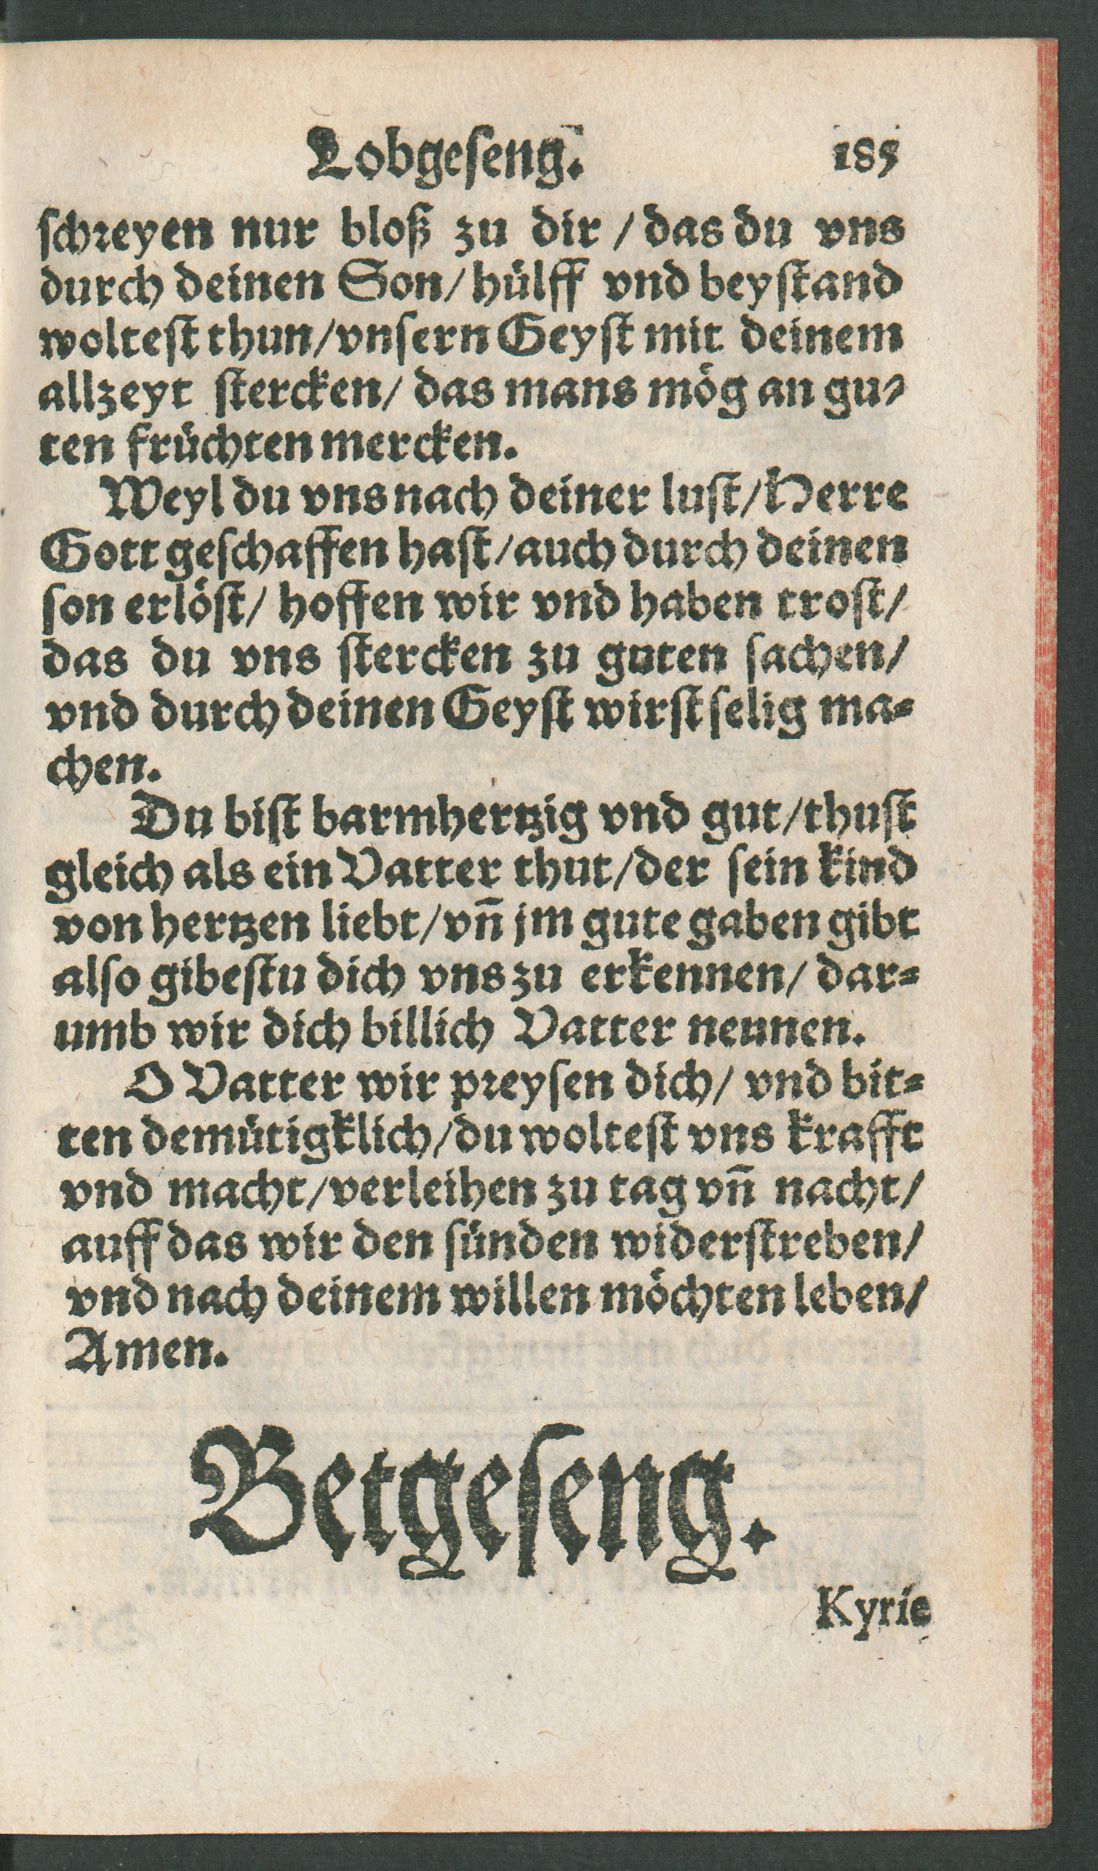 Lobgeseng. 185
schreyen nur bloß zu dir / das du vns
durch deinen Son / hülff vnd beystand
woltest thun / vnsern Geyst mit deinem
allzeyt stercken / das mans mög an gu-
ten früchten mercken.
Weyl du vns nach deiner lust / Herre
Gott geschaffen hast / auch durch deinen
son erlöst / hoffen wir vnd haben trost /
das du vns stercken zu guten sachen /
vnd durch deinen Geyst wirst selig ma-
chen.
Du bist barmhertzig vnd gut / thust
gleich als ein Vatter thut / der sein kind
von hertzen liebt / vn̄ jm gute gaben gibt
also gibestu dich vns zu erkennen / dar-
umb wir dich billich Vatter nennen.
O Vatter wir preysen dich / vnd bit-
ten demütigklich / du woltest vns krafft
vnd macht / verleihen zu tag vn̄ nacht /
auff das wir den sünden widerstreben /
vnd nach deinem willen möchten leben /
Amen.
Betgeseng.
Kyrie